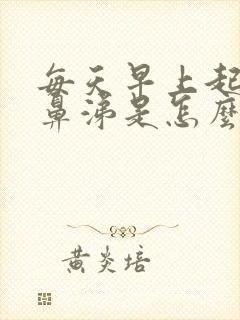 每天早上起
鼻涕是怎麼
黄炎培